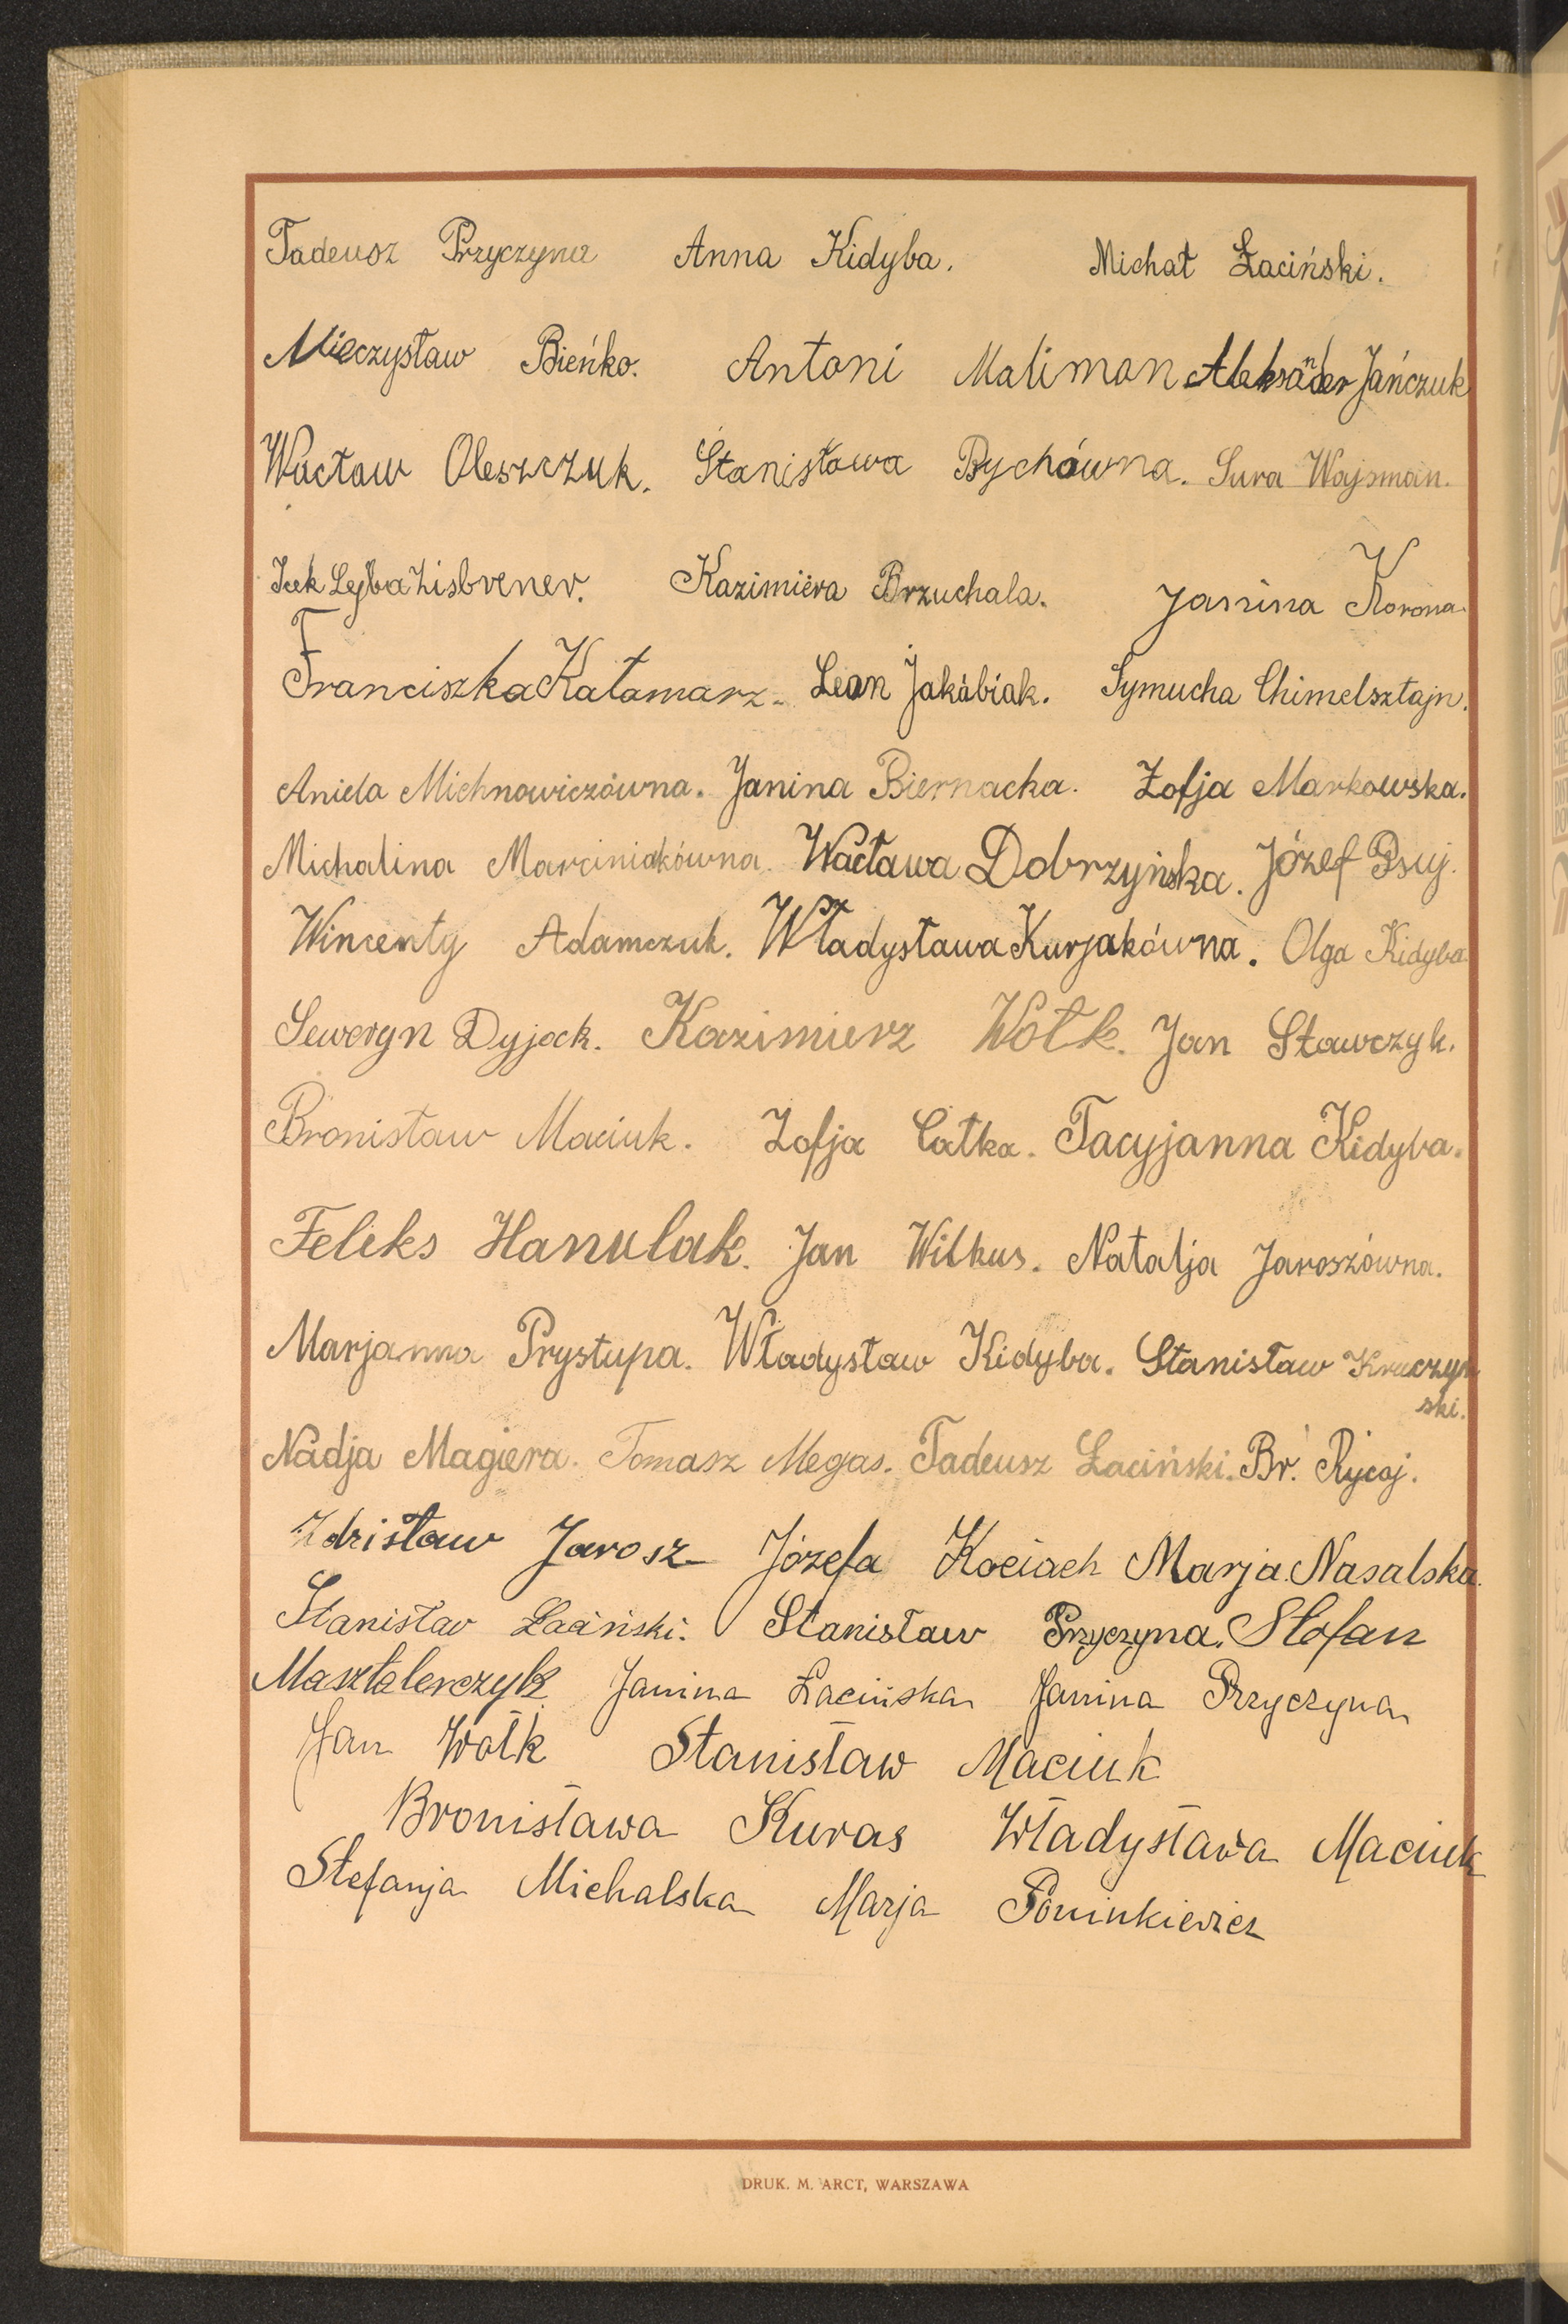 Tadeusz Przyczyna Anna Kidyba. Michał Łaciński.
Mieczysław Bieńko. Antoni Maliman Aleksander Jańczuk
Wacław Oleszczuk. Stanisława Bychówna. Sura Wajsman.
Icek Lejba Zisbrener. Kazimiera Brzuchala. Janina Korona.
Franciszka Kałamarz. Leon Jakóbiak. Symucha Chimelsztajn.
Aniela Michnowiczówna. Janina Biernacka. Zofja Markowska.
Michalina Marciniakówna. Wacława Dobrzyńska. Józef Psuj.
Wincenty Adamczuk. Władysława Kurjakówna. Olga Kidyba
Seweryn Dyjack. Kazimierz Wołk. Jan Sławczyk.
Bronisław Maciuk. Zofja Całka. Tacyjanna Kidyba.
Feliks Hanulak. Jan Wilkus. Natalja Jaroszówna.
Marjanna Prystupa. Władysław Kidyba. Stanisław Kruczyn
ski.
Nadja Magiera. Tomasz Megas. Tadeusz Łaciński. Br. Rycaj.
Zdzisław Jarosz Józefa Kociach Marja Nasalska.
Stanisław Łaciński. Stanisław Przyczyna. Stefan
Masztalerczyk Janina Łacińska Janina Przyczyna
Jan Wołk Stanisław Maciuk
Bronisława Kuras Władysława Maciuk
Stefanja Michalska Marja Poninkiewicz
DRUK. M. ARCT, WARSZAWA